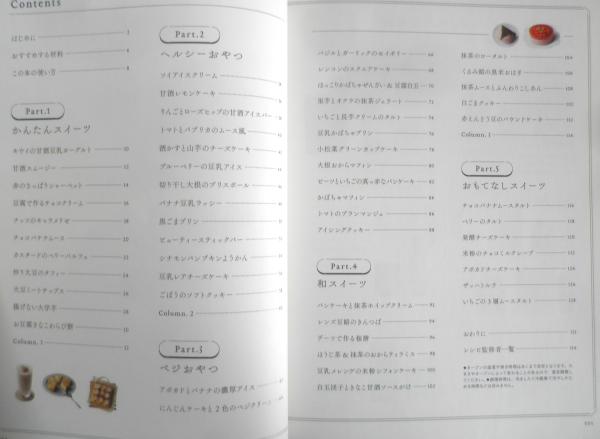 Contents
はじめに 2
おすすめする材料 4
この本の使い方 6
Part.1
かんたんスイーツ
キウイの甘酒豆乳ヨーグルト 10
甘酒スムージー 12
赤のさっぱりシャーベット 14
豆腐で作るチョコクリーム 16
ナッツのキャラメリゼ 18
チョコバナナムース 20
カスタードのベリーパルフェ 22
炒り大豆のタフィー 24
大豆ミートチップス 26
揚げない大学芋 28
お豆腐きなこわらび餅 30
Column. 1 32
Part.2
ヘルシーおやつ
ソイアイスクリーム
甘酒レモンケーキ
りんごとローズヒップの甘酒アイスバー
トマトとパプリカのムース風
酒かすと山芋のチーズケーキ
ブルーベリーの豆乳アイス
切り干し大根のグリスボール
バナナ豆乳ラッシー
黒ごまプリン
ビューティースティックバー
シナモンパンプキンようかん
豆乳レアチーズケーキ
ごぼうのソフトクッキー
Column. 2
Part.3
ベジおやつ
アボカドとバナナの濃厚アイス
にんじんケーキと2色のベジクリーム
バジルとガーリックのセイボリー 66
レンコンのスクエアケーキ 68
ほっこりかぼちゃぜんざい & 豆腐白玉 70
里芋とオクラの抹茶ジェラート 72
いちごと長芋クリームのタルト 74
豆乳かぼちゃプリン 76
小松菜グリーンカップケーキ 78
大根おからマフィン 80
ビーツといちごの真っ赤なパンケーキ 82
かぼちゃマフィン 84
トマトのブランマンジェ 86
アイシングクッキー 88
Part.4
和スイーツ
パンケーキと抹茶ホイップクリーム 92
レンズ豆餡のきんつば 94
デーツで作る桜餅 96
ほうじ茶 & 抹茶のおからティラミス 98
豆乳メレンゲの米粉シフォンケーキ 100
白玉団子ときなこ甘酒ソースがけ 102
抹茶のロータルト 104
くるみ餡の黒米おはぎ 106
抹茶ムースとふんわりこしあん 108
白ごまクッキー 110
赤えんどう豆のパウンドケーキ 112
Column. 1 114
Part.5
おもてなしスイーツ
チョコバナナムースタルト 118
ベリーのタルト 120
発酵チーズケーキ 122
米粉のチョコくるみクレープ 124
アボカドチーズケーキ 126
ザッハトルテ 128
いちごの3層ムースタルト 130
おわりに 132
レシピ監修者一覧